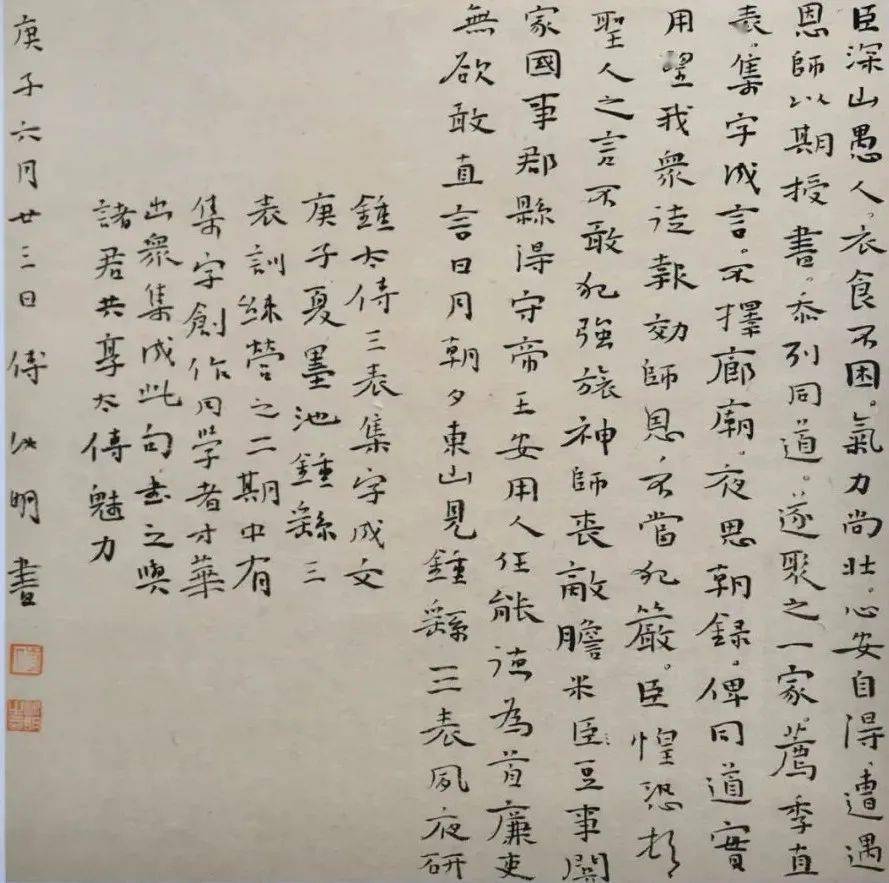 臣深山愚人。衣食不困。氣力尚壯。心安自得。遭遇
恩師以期授書。忝列同道。遂聚之一家。薦季直
表。集字成言。不擇廊廟。夜思朝録。俾同道實
用。望我衆徒報効師恩。不當犯嚴。臣惶恐頓
聖人之言不敢犯強旅神師喪敵膽米臣豆事闢
家國事郡縣得守帝王安用人任能德為首廉吏
無欲敢直言日月朝夕東山見鍾繇三表夙夜研
鍾太傅三表集字成文
庚子夏墨池鍾繇三
表訓練營之二期中有
集字創作同學者才華
出衆集成此句書之與
諸君共享太傅魅力
庚子六月廿三日傅明書